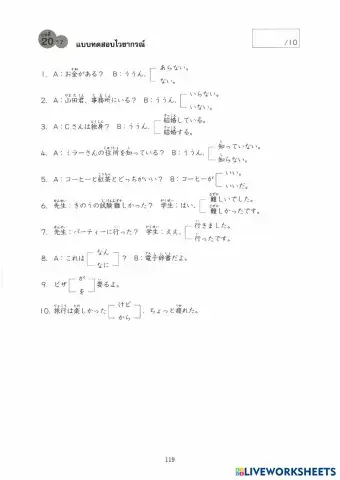 บทที่ 20
แบบทดสอบไวยากรณ์
/10
1. A：お金がある？ B：ううん、
あらない。
ない。
2. A：山田君、事務所にいる？ B：ううん、
いらない。
いない。
3. A：Cさんは独身？ B：ううん、
結婚している。
結婚する。
4. A：ミラーさんの住所を知っている？ B：ううん、
知っていない。
知らない。
5. A：コーヒーと紅茶とどっちがいい？ B：コーヒーが
いい。
いいだ。
6. 先生：きのうの試験難しかった？ 学生：はい、
難しいでした。
難しかったです。
7. 先生：パーティーに行った？ 学生：ええ、
行きました。
行ったです。
8. A：これは
なん
なに
？ B：電子辞書だよ。
9. ピザ
が
を
要るよ。
10. 旅行は楽しかった
けど
から
、ちょっと疲れた。
119
LIVEWORKSHEETS